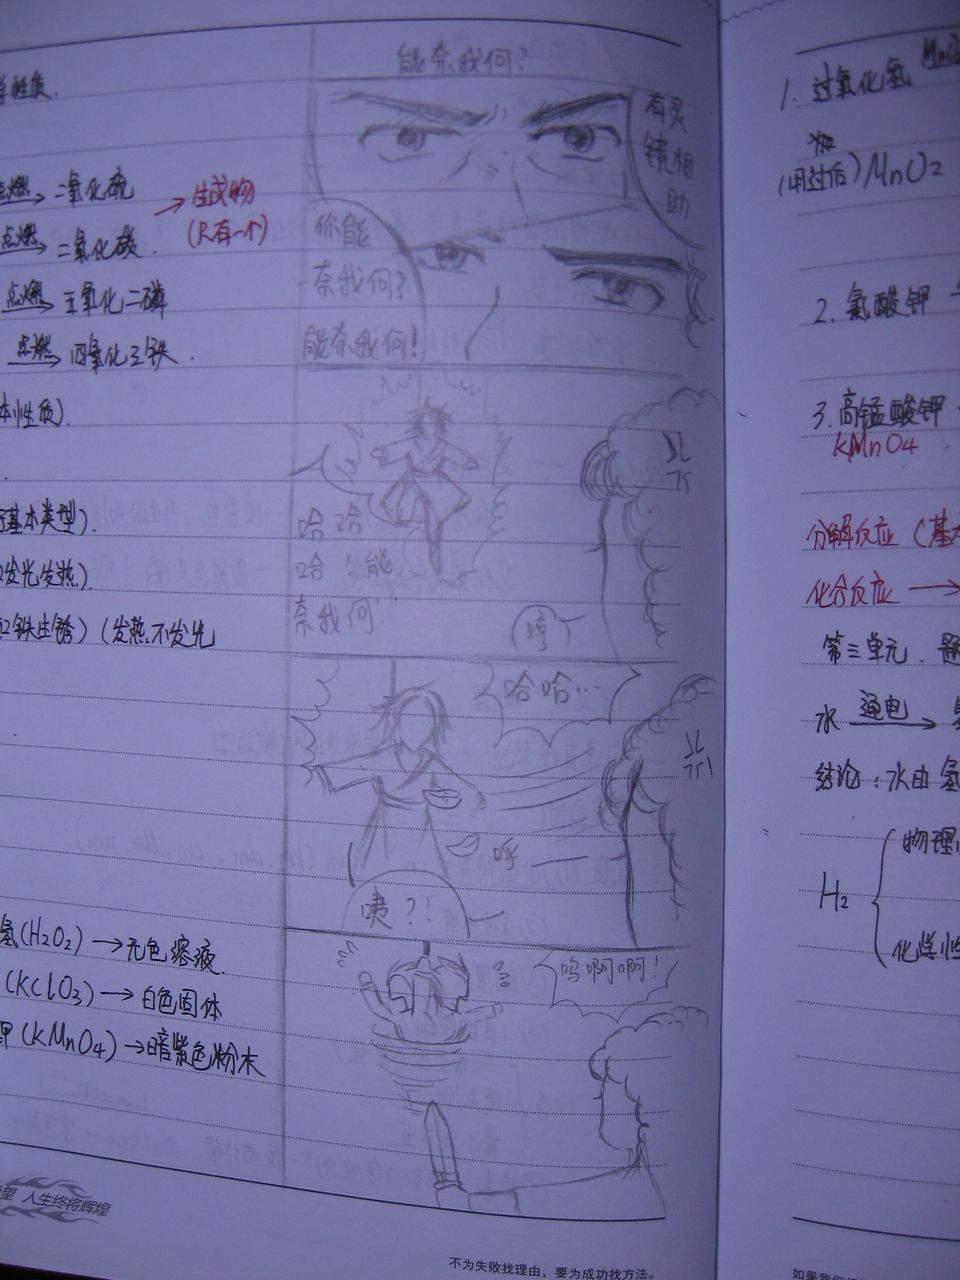 能奈我何?
有灵
镜相
助
你能
奈我何?
能奈我何!
哈哈
哈!能
奈我何
哼
哈哈…
呼
咦?!
呜啊啊!
学性质.
点燃 二氧化硫
点燃 二氧化碳.
点燃 五氧化二磷
点燃 四氧化三铁.
→生成物
(只有一个)
本性质).
基本类型).
发光发热).
铁生锈)(发热不发光
氢(H2O2)→无色溶液.
(KClO3)→白色固体
钾(KMnO4)→暗紫色粉末
人生终将辉煌
不为失败找理由,要为成功找方法。
1. 过氧化氢 MnO2
(用过后)MnO2
2. 氯酸钾
3. 高锰酸钾
KMnO4
分解反应(基本
化合反应→
第三单元.
水 通电
结论:水由氢
H2
物理
化学性
如果我们